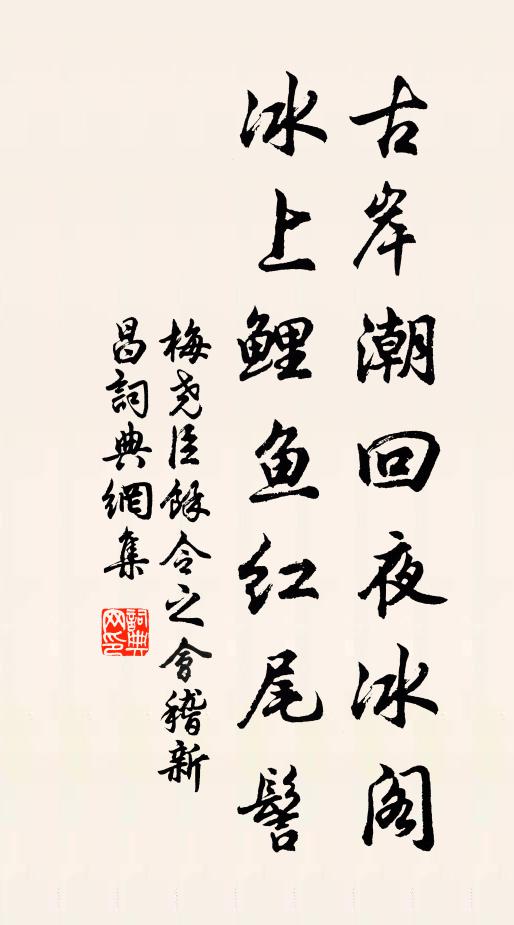 古岸潮回夜冰阁
冰上鲤鱼红尾髻
梅尧臣餘令之會稽新
昌詞典網集
詞典
网印